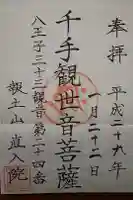 奉拝
平成二十九年
一月二十二日
千手観世音菩薩
八王子三十三観音第二十四番
擬土山真入院